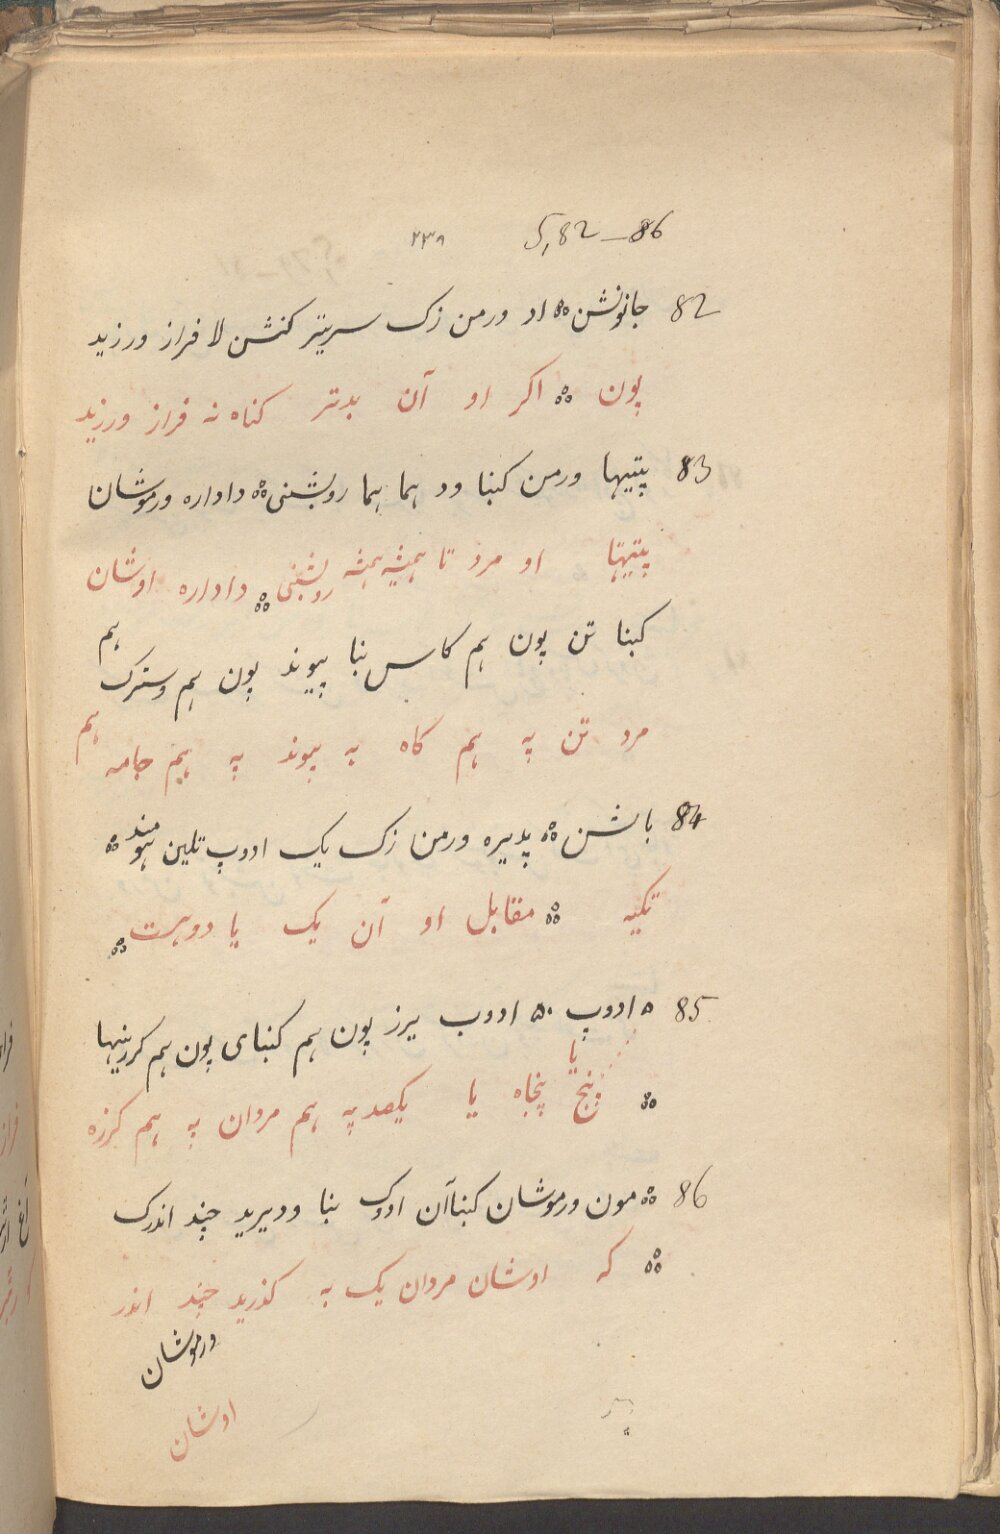 5,82-86 ۲۳۹
82 جانونشن ஃ اد ورمن زک سریتر کنشن لا فراز ورزید
پون ஃ اکر او آن بدتر کناه نه فراز ورزید
83 پتیتیها ورمن کبنا ود هما هما روبشنی ஃ داداره ورموشان
پتیتیها او مرد تا همیشه همیشه روبشنی ஃ داداره اوشان
کبنا تن پون هم کاس بنا پیوند پون هم وسترک هم
مرد تن په هم کاه به پیوند په هم جامه هم
84 باشن ஃ پدیره ورمن زک یک ادوپ تلین هومند ஃ
تکیه ஃ مقابل او آن یک یا دوهست ஃ
85 ۵ ادوپ ۵۰ ادوپ یرز پون هم کبنای پون هم کررینیها
ஃ پنج یا پنجاه یا یکصد په هم مردان په هم کرزه
86 ஃ مون ورموشان کبناآن ادوک بنا ودیرید چند اندرک
ஃ که اوشان مردان یک به کذرید چند اندر
ورموشان
اوشان